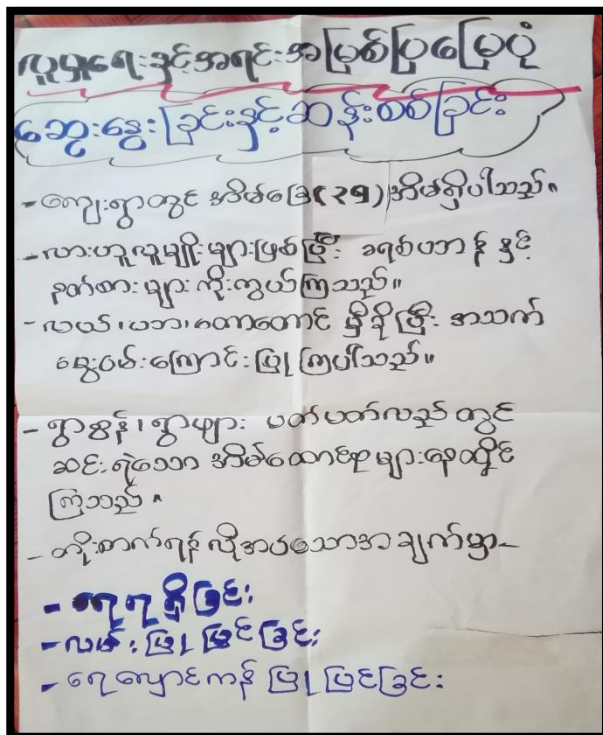 လူမှုရေးနှင့်အရင်းအမြစ်ပြမြေပုံ
ဆွေးနွေးခြင်းနှင့်ဆန်းစစ်ခြင်း
- ကျေးရွာတွင် အိမ်ခြေ(၃၅)အိမ်ရှိပါသည်။
- လားဟူလူမျိုးများဖြစ်ပြီး ခရစ်ယာန် နှင့်
နတ်စားများ ကိုးကွယ်ကြသည်။
- လယ်၊ယာ၊တောတောင် မှီခိုပြီး အသက်
မွေးဝမ်းကြောင်းပြုကြပါသည်။
- ရွာစွန်၊ရွာဖျား ပတ်ပတ်လည်တွင်
ဆင်းရဲသော အိမ်ထောင်စုများနေထိုင်
ကြသည်။
- တိုးတက်ရန်လိုအပ်သောအချက်မှာ-
- ရေရရှိခြင်း
- လမ်းပြုပြင်ခြင်း
- ရေလှောင်ကန်ပြုပြင်ခြင်း